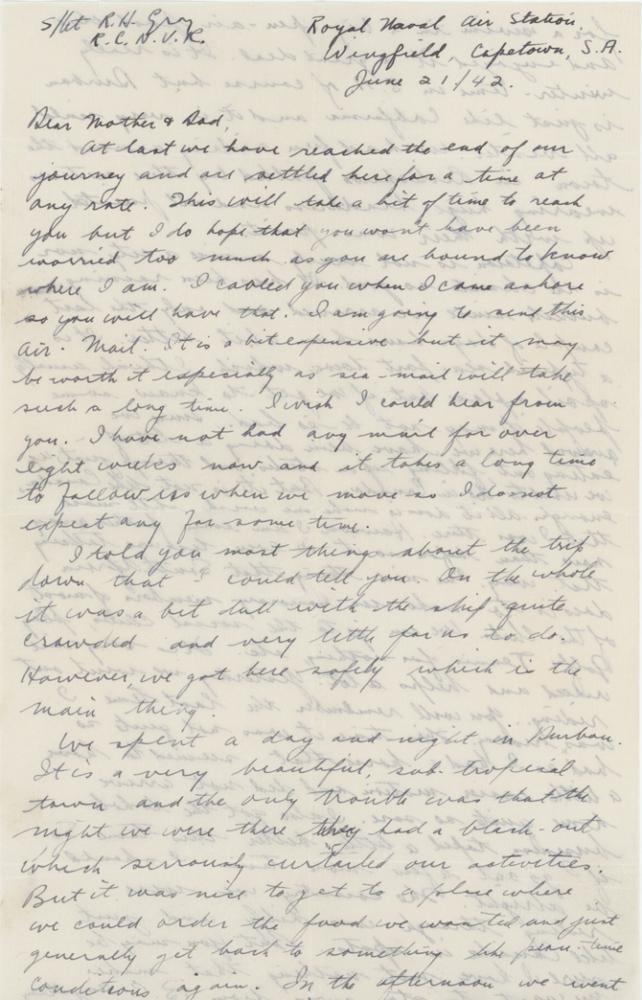 S/Lt R.H. Gray
R.C.N.V.R.
Royal Naval Air Station,
Wingfield, Capetown, S.A.
June 21/42.
Dear Mother & Dad,
At last we have reached the end of our
journey and are settled here for a time at
any rate. This will take a bit of time to reach
you but I do hope that you won't have been
worried too much as you are bound to know
where I am. I cabled you when I came ashore
so you will have that. I am going to send this
Air. Mail. It is a bit expensive but it may
be worth it especially as sea-mail will take
such a long time. I wish I could hear from
you. I have not had any mail for over
eight weeks now and it takes a long time
to follow us when we move so I do not
expect any for some time.
I told you most things about the trip
down that I could tell you. On the whole
it was a bit dull with the ship quite
crowded and very little for us to do.
However, we got here safely which is the
main thing.
We spent a day and night in Durban.
It is a very beautiful, sub-tropical
town and the only trouble was that the
night we were there they had a black-out
which seriously curtailed our activities.
But it was nice to get to a place where
we could order the food we wanted and just
generally get back to something like peace-time
conditions again. In the afternoon we went